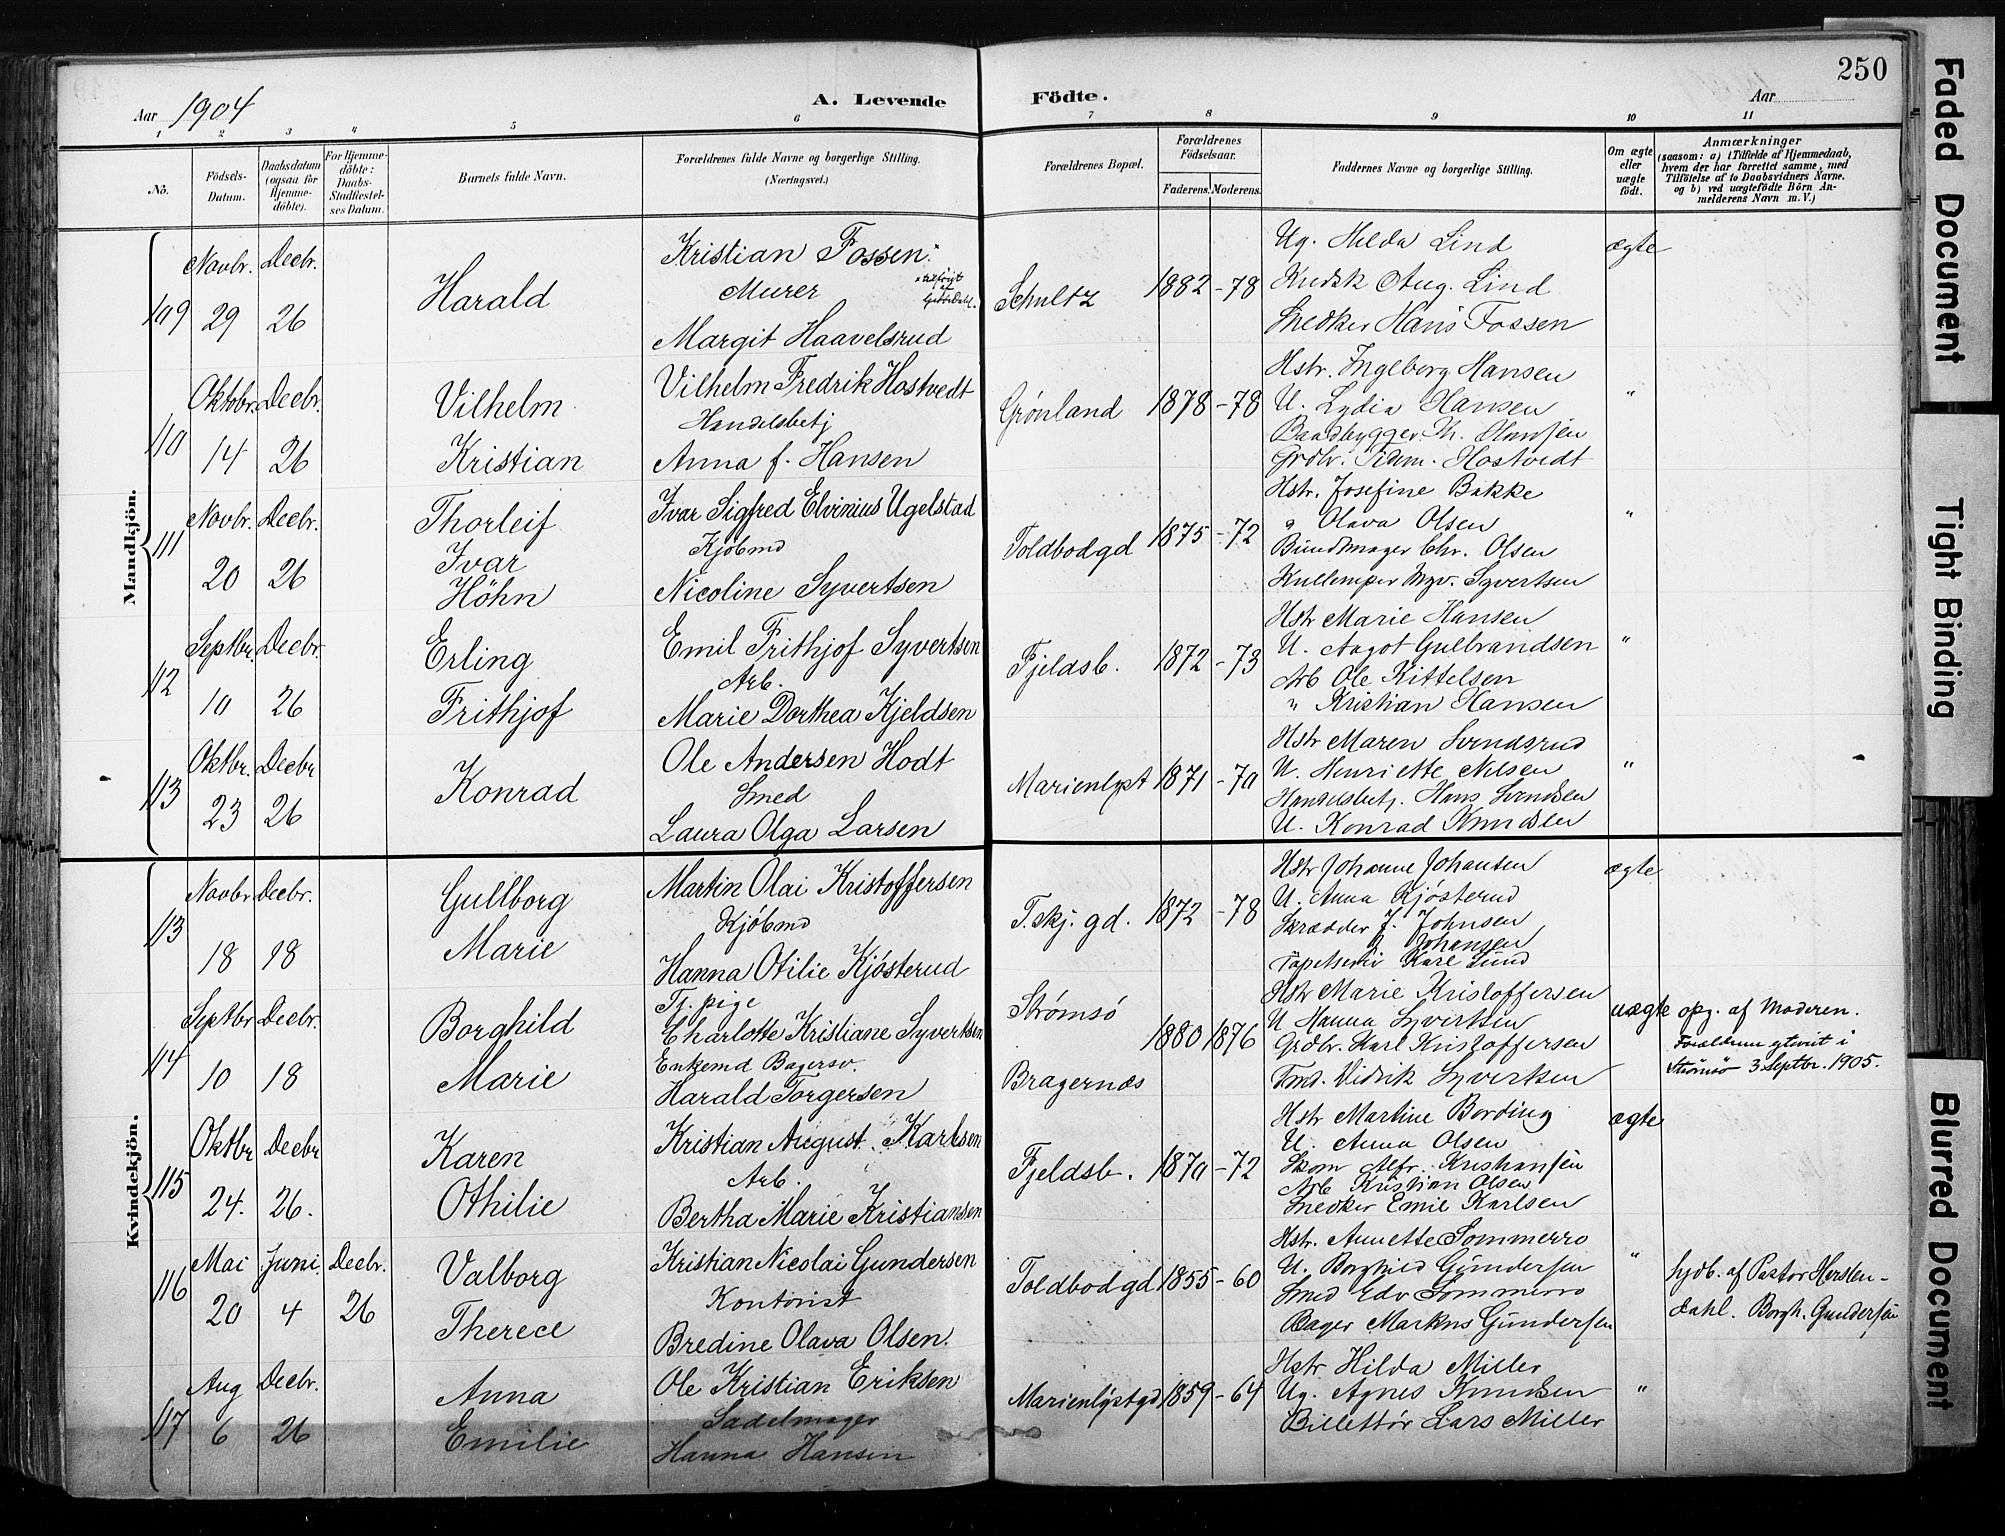 250
Aar 1904
A. Levende Födte.
Aar
1 2 3 4 5 6 7 8 9 10 11
No.
Födsels-Datum.
Daabsdatum (ogsaa för Hjemme-döbte).
For Hjemme-döbte: Daabs-Stadfæstel-ses Datum.
Barnets fulde Navn.
Forældrenes fulde Navne og borgerlige Stilling. (Næringsvei.)
Forældrenes Bopæl.
Forældrenes Födselsaar.
Faderens. Moderens.
Faddernes Navne og borgerlige Stilling.
Om ægte eller uægte födt.
Anmærkninger
(saasom: a) i Tilfælde af Hjemmedaab, hvem der har forrettet samme, med Tilföielse af to Daabsvidners Navne, og b) ved uægtefödte Börn Anmelderens Navn m. V.)
Mandkjön.
109 Novbr. 29 Decbr. 26
Harald
Kristian Fossen
Murer
Margit Haavelsrud
Schultz 1882 - 78
Ug. Hilda Lind
Kudsk Aug. Lind
Snedker Hans Fossen
ægte
110 Oktobr. 14 Decbr. 26
Vilhelm
Kristian
Vilhelm Fredrik Hostvedt
Handelsbetj
Anna f. Hansen
Grønland 1878 - 78
Hstr. Ingeborg Hansen
U. Lydia Hansen
Baadbygger Th. Hansen
Grdbr. Hostvedt
"
111 Novbr. 20 Decbr. 26
Thorleif
Ivar
Höhn
Ivar Sigfred Elvinius Ugelstad
Kjöbmd
Nicoline Syvertsen
Toldbodgd 1875 - 72
Hstr. Josefine Bakke
" Olava Olsen
Bundtmager Chr. Olsen
Syvertsen
"
112 Septbr. 10 Decbr. 26
Erling
Frithjof
Emil Frithjof Syvertsen
Arb.
Marie Dorthea Kjeldsen
Fjeldsb. 1872 - 73
Hstr Marie Hansen
U. Aagot Gulbrandsen
Arb Ole Kittelsen
" Kristian Hansen
"
113 Oktbr. 23 Decbr 26
Konrad
Ole Andersen Hodt
Smed
Laura Olga Larsen
Marienlyst 1871 - 70
Hstr Maren Svendsrud
U. Henriette Nilsen
Handelsbetj. Hans Svendsen
U. Konrad Knudsen
"
Kvindekjön.
113 Novbr 18 Decbr. 18
Gullborg
Marie
Martin Olai Kristoffersen
Kjöbmd
Hanna Otilie Kjösterud
T. skj. gd. 1872 - 78
Hstr Johanne Johansen
U. Anna Kjösterud
Skrædder J. Johnsen
J. Johansen
Karl Lund
ægte
114 Septbr 10 Decbr. 18
Borghild
Marie
Tj. pige
Charlotte Kristiane Syvertsen
Enkemd Bagersv.
Harald Torgersen
Strømsö
Bragernæs
1880 1876
Hstr Marie Kristoffersen
U Hanna Syvertsen
Grdbr. Karl Kristoffersen
Tmd. Didrik Syvertsen
uægte
opg. af Moderen.
Forældrene gtviet i
Strömsö 3 Septbr. 1905.
115 Oktbr 24. Decbr 26.
Karen
Othilie
Kristian August Karlsen
Arb.
Bertha Marie Kristiansen
Fjeldsb. 1870 - 72
Hstr Martine Bording
U. Anna Olsen
Skom Alfr. Kristiansen
Arb Kristian Olsen
Snedker Emil Karlsen
ægte
116 Mai 20 Juni. 4 Decbr. 26
Valborg
Therece
Kristian Nicolai Gundersen
Kontorist
Bredine Olava Olsen.
Toldbodgd 1855 - 60
Hstr. Annette Sommerro
U. Borghild Gundersen
Smed Edv Sommerro
Bager Markus Gundersen
"
hjdb. af Pastor Hersle-
dahl. Borgh. Gundersen
117 Aug 6 Decbr. 26
Anna
Emilie
Ole Kristian Eriksen
Sadelmager
Hanna Hansen
Marienlystgd 1859 - 64
Hstr. Hilda Miller
Ug. Agnes Knudsen
Billettör Lars Miller
"
Faded Document
Tight Binding
Blurred Document